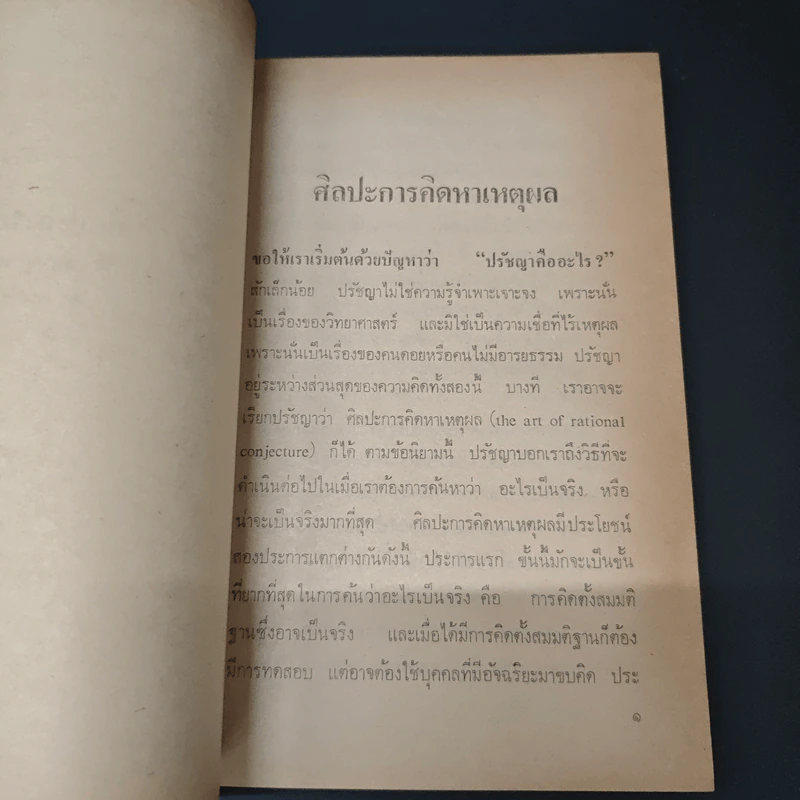 ศิลปะการคิดหาเหตุผล
ขอให้เราเริ่มต้นด้วยปัญหาว่า “ปรัชญาคืออะไร?”
สักเล็กน้อย ปรัชญาไม่ใช่ความรู้จำเพาะเจาะจง เพราะนั่น
เป็นเรื่องของวิทยาศาสตร์ และมิใช่เป็นความเชื่อที่ไร้เหตุผล
เพราะนั่นเป็นเรื่องของคนดอยหรือคนไม่มีอารยธรรม ปรัชญา
อยู่ระหว่างส่วนสุดของความคิดทั้งสองนี้ บางที เราอาจจะ
เรียกปรัชญาว่า ศิลปะการคิดหาเหตุผล (the art of rational
conjecture) ก็ได้ ตามข้อนิยามนี้ ปรัชญาบอกเราถึงวิธีที่จะ
ดำเนินต่อไปในเมื่อเราต้องการค้นหาว่า อะไรเป็นจริง หรือ
น่าจะเป็นจริงมากที่สุด ศิลปะการคิดหาเหตุผลมีประโยชน์
สองประการแตกต่างกันดังนี้ ประการแรก ขั้นนี้มักจะเป็นขั้น
ที่ยากที่สุดในการค้นว่าอะไรเป็นจริง คือ การคิดตั้งสมมติ
ฐานซึ่งอาจเป็นจริง และเมื่อได้มีการคิดตั้งสมมติฐานก็ต้อง
มีการทดสอบ แต่อาจต้องใช้บุคคลที่มีอัจฉริยะมาขบคิด ประ
๑